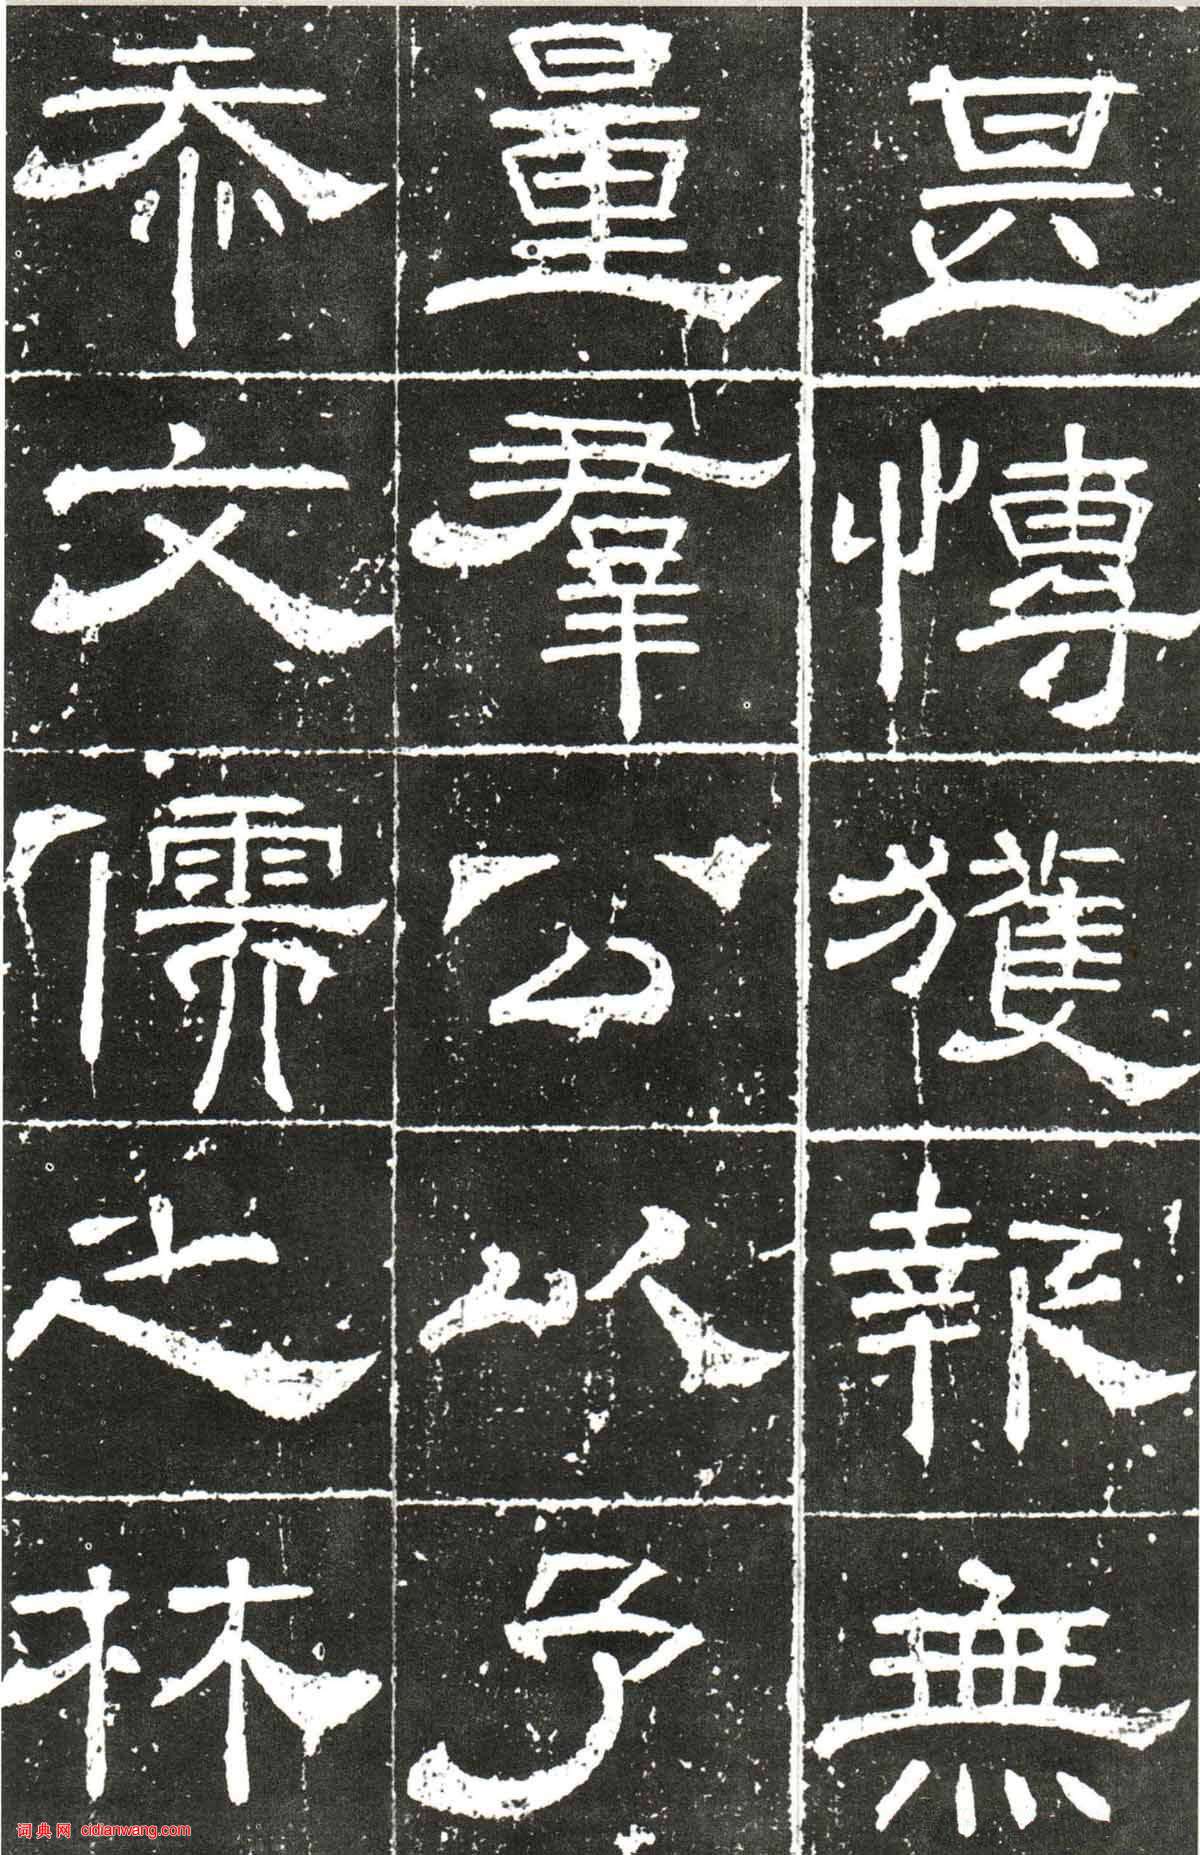 甚慱獲報無
量羣公以予
忝文儒之林
词典网 cidianwang.com